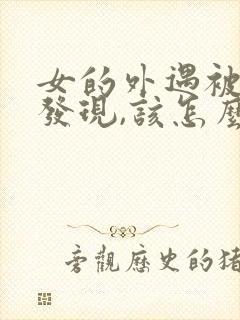 女的外遇被
發現,該怎麼
旁觀歷史的猪